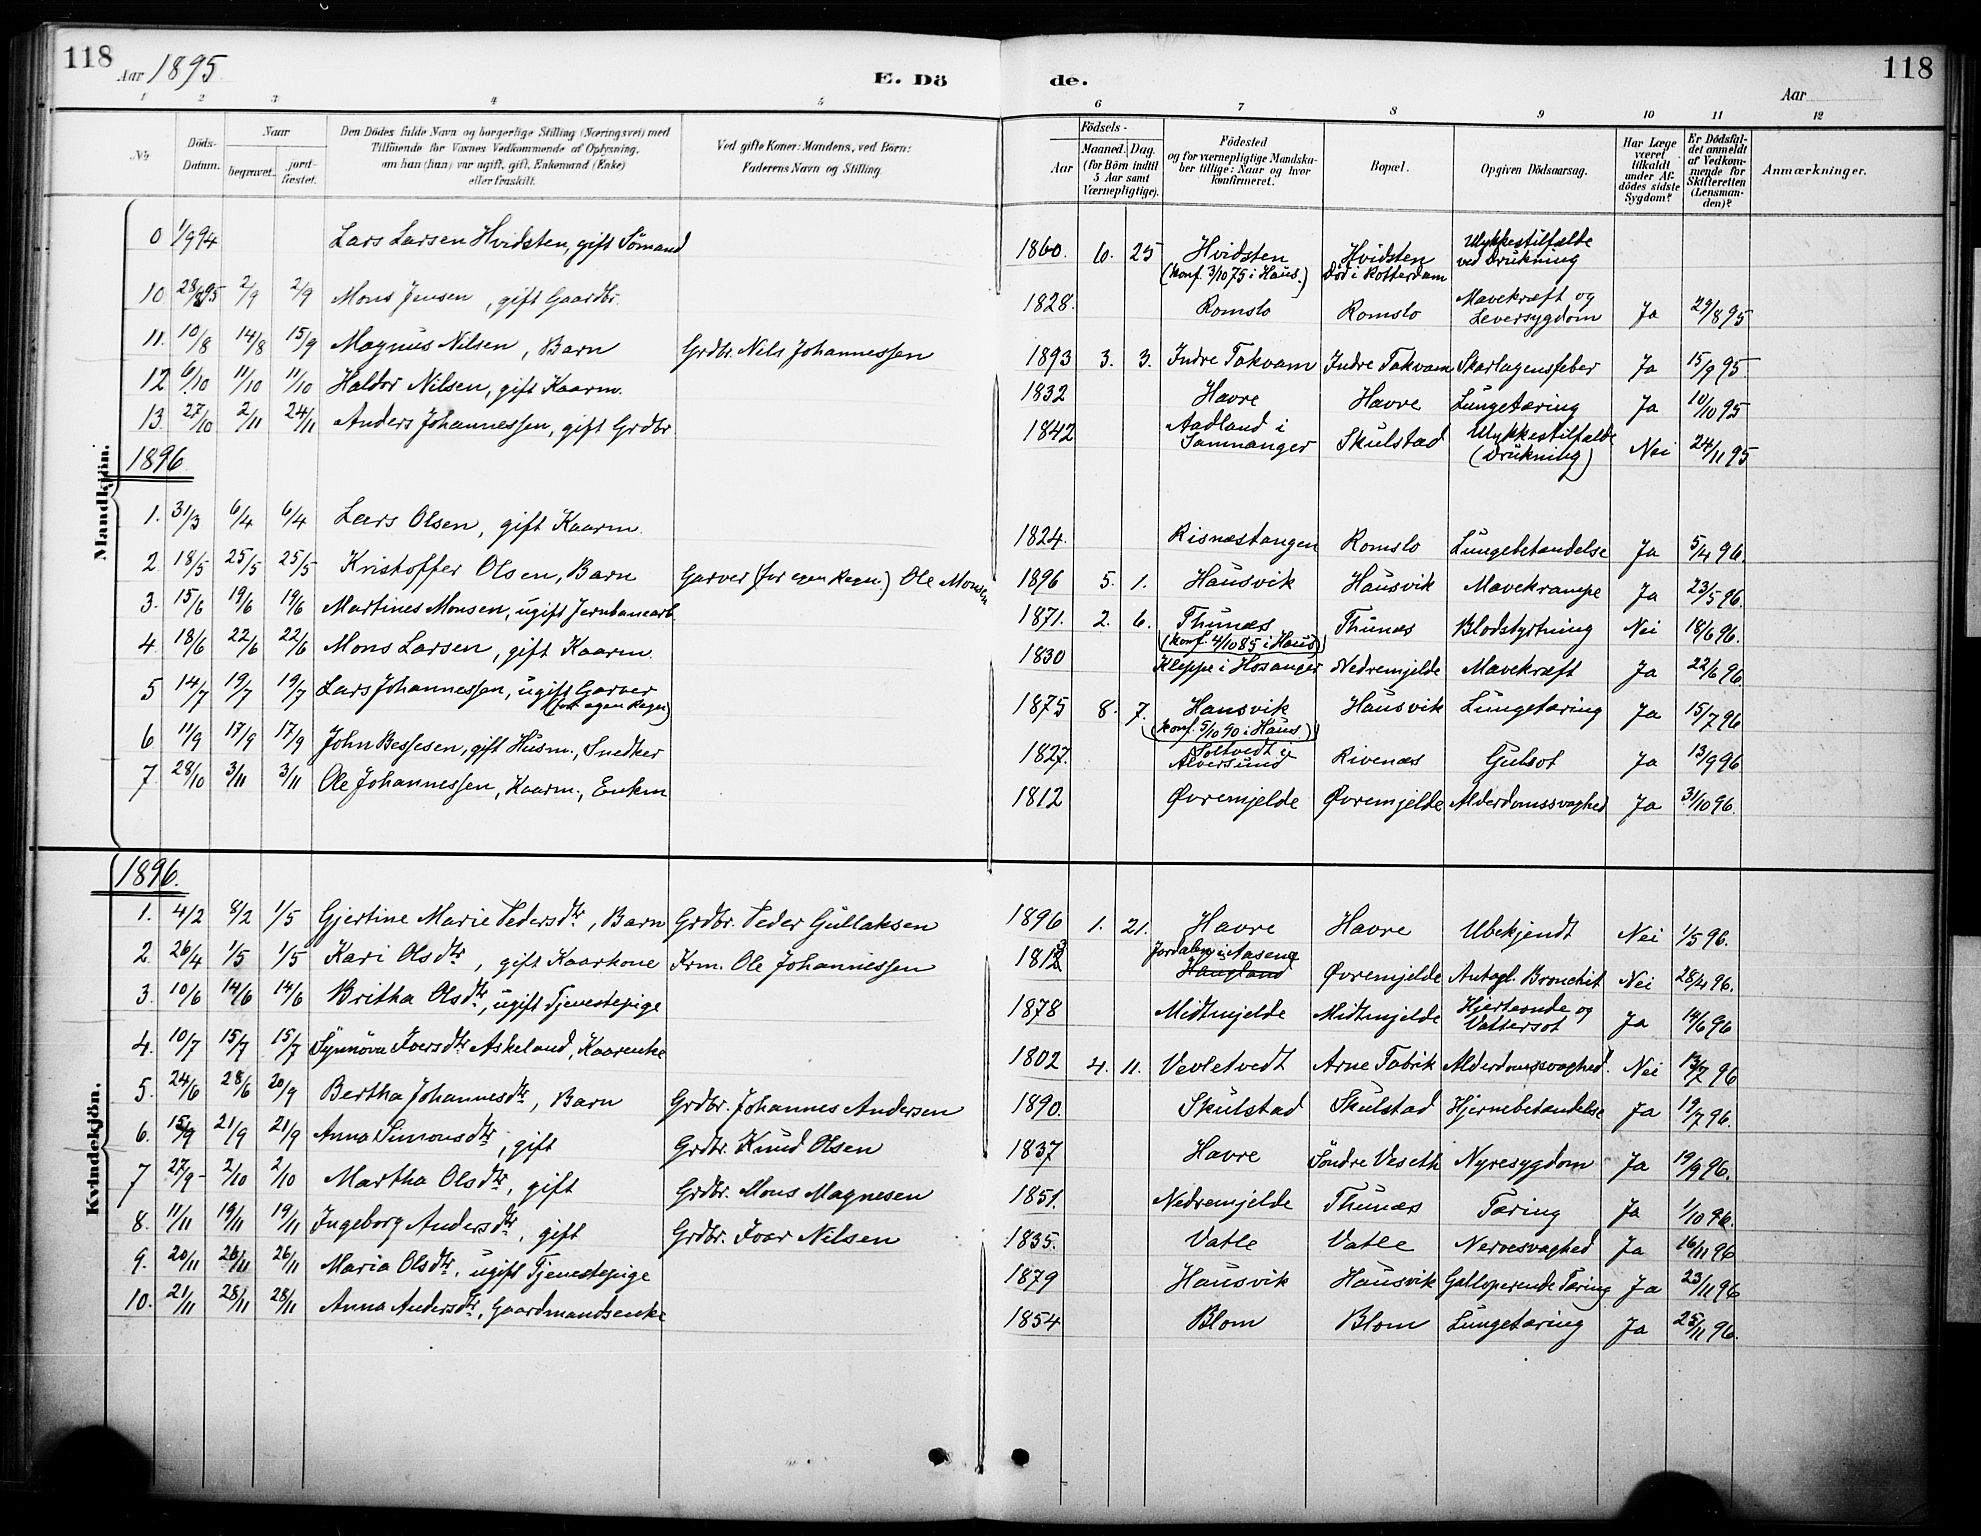 118
Aar 1895
E. Dö
de.
118
Aar
1 2 3 4 5 6 7 8 9 10 11 12
No
Döds-Datum.
Naar
begravet.
jordfæstet.
Den Dödes fulde Navn og borgerlige Stilling (Næringsvei) med
Tilföiende for Voxnes Vedkommende af Oplysning,
om han (hun) var ugift, gift, Enkemand (Enke)
eller fraskilt.
Ved gifte Koner: Mandens, ved Börn:
Faderens Navn og Stilling
Födsels-
Aar
Maaned. Dag.
(for Börn indtil
5 Aar samt
Værnepligtige).
Födested
og for værnepligtige Mandska-
ber tillige: Naar og hvor
konfirmeret.
Bopæl.
Opgiven Dödsaarsag.
Har Læge
været
tilkaldt
under Af-
dödes sidste
Sygdom?
Er Dödsfal-
det anmeldt
af Vedkom-
mende for
Skifteretten
(Lensman-
den)?
Anmærkninger.
Mandkjön.
0 1/9 94 Lars Larsen Hvidsten, gift Sömand 1860. 6. 25 Hvidsten (konf. 3/10 75 i Haus.) Hvidsten Död i Rotterdam Ulykkestilfælde ved Drukning
10 28/8 95 2/9 2/9 Mons Jensen, gift Gaardbr. 1828. Romslo Romslo Mavekræft og Leversygdom Ja 29/8 95
11. 10/8 14/8 15/9 Magnus Nilsen, Barn Grdbr. Nils Johannessen 1893 3. 3. Indre Takvam Indre Takvam Skarlagensfeber Ja 15/9 95.
12 6/10 11/10 11/10 Haldor Nilsen, gift Kaarm. 1832 Havre Havre Lungetæring Ja 10/10 95
13. 27/10 2/11 24/11 Anders Johannessen, gift Grdbr 1842 Aadland i Samnanger Skulstad Ulykkestilfælde (Drukning) Nei 24/11 95
1896
1. 31/3 6/4 6/4 Lars Olsen, gift Kaarm. 1824. Risnæstangen Romslo Lungebetændelse Ja 5/4 96.
2. 18/5 25/5 25/5 Kristoffer Olsen, Barn Garver (for egen Regn.) Ole Monsen 1896 5. 1. Hausvik Hausvik Mavekrampe Ja 23/5 96.
3. 15/6 19/6 19/6 Martines Monsen, ugift Jernbanearb. 1871. 2. 6. Thunæs (konf. 4/10 85 i Haus) Thunæs Blodstyrtning Nei 18/6 96.
4. 18/6 22/6 22/6 Mons Larsen, gift Kaarm. 1830 Kleppe i Hosanger Nedremjelde Mavekræft Ja 22/6 96.
5 14/7 19/7 19/7 Lars Johannessen, ugift Garver (for egen Regn) 1875 8. 7. Hausvik (konf. 5/10 90 i Haus.) Hausvik Lungetæring Ja 15/7 96
6 11/9 17/9 17/9 John Bessesen, gift Husm., Snedker 1827. Soltvedt i Alversund Rivenæs Gulsot Ja 13/9 96
7. 28/10 3/11 3/11 Ole Johannessen, Kaarm., Enkm 1812 Øvremjelde Øvremjelde Alderdomssvaghed Ja 31/10 96.
Kvindekjön.
1896.
1. 4/2 8/2 1/5 Gjertine Marie Pedersdtr, Barn Grdbr. Peder Gullaksen 1896 1. 21. Havre Havre Ubekjendt Nei 1/5 96.
2. 26/4 1/5 1/5 Kari Olsdtr, gift Kaarkone Krm. Ole Johannessen 1813 Jordalen i Aasene Haugland Øvremjelde Antagl. Bronchit Nei 28/4 96.
3. 10/6 14/6 14/6 Britha Olsdtr, ugift Tjenestepige 1878 Midtmjelde Midtmjelde Hjerteonde og Vattersot Ja 14/6 96
4. 10/7 15/7 15/7 Synnöva Iversdtr Askeland, Kaarenke 1802 4. 11. Vevletvedt Arne Fabrik Alderdomssvaghed. Nei 13/7 96
5. 24/6 28/6 20/9 Bertha Johannesdtr, Barn Grdbr. Johannes Andersen 1890. Skulstad Skulstad Hjernebetændelse Ja 19/7 96.
6. 15/9 21/9 21/9 Anna Simonsdtr, gift Grdbr. Knud Olsen 1837 Havre Söndre Veseth Nyresygdom Ja 19/9 96.
7 27/9 2/10 2/10 Martha Olsdtr, gift Grdbr. Mons Magnesen 1851. Nedremjelde Thunæs Tæring Ja 1/10 96.
8. 11/11 19/11 19/11 Ingeborg Andersdtr, gift Grdbr. Ivar Nilsen 1835. Vatle Vatle Nervesvaghed Ja 16/11 96
9. 20/11 26/11 26/11 Maria Olsdtr, ugift Tjenestepige 1879 Hausvik Hausvik Galloperende Tæring Ja 23/11 96
10. 21/11 28/11 28/11 Anna Andersdtr, Gaardmandsenke 1854 Blom Blom Lungetæring Ja 25/11 96.